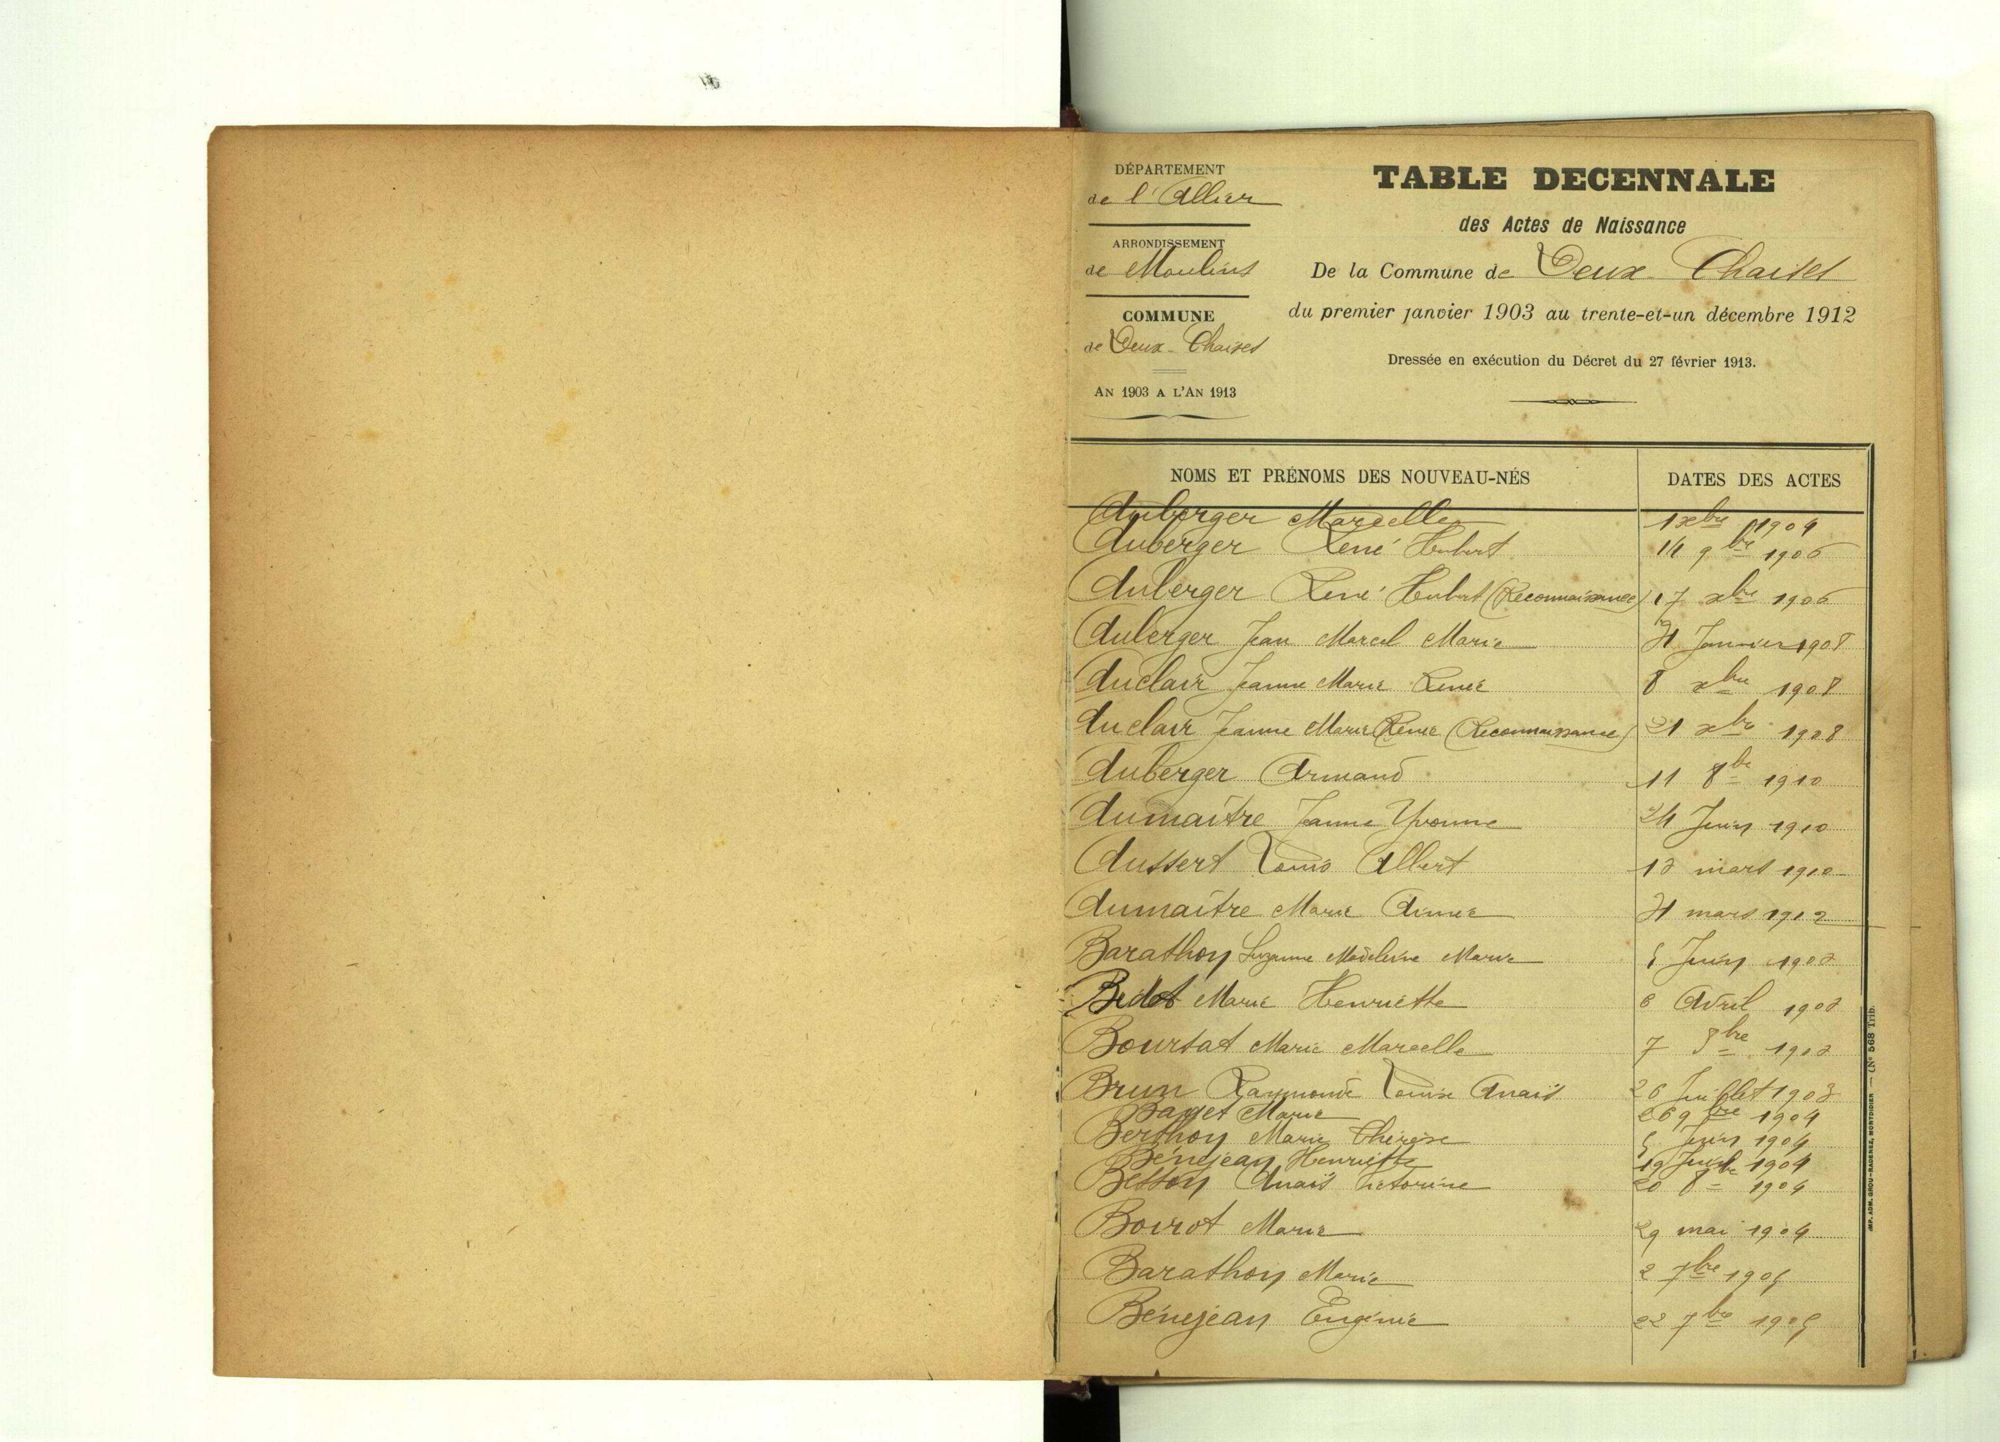 DÉPARTEMENT
de l'Allier
ARRONDISSEMENT
de Moulins
COMMUNE
de Deux-Chaises
AN 1903 A L'AN 1913
TABLE DECENNALE
des Actes de Naissance
De la Commune de Deux-Chaises
du premier janvier 1903 au trente-et-un décembre 1912
Dressée en exécution du Décret du 27 février 1913.
NOMS ET PRÉNOMS DES NOUVEAU-NÉS DATES DES ACTES
Auberger Marcelle 1 xbre 1904
Auberger René Hubert 14 9bre 1906
Auberger René Hubert (Reconnaissance) 17 xbre 1906
Auberger Jean Marcel Marie 31 Janvier 1908
Auclair Jeanne Marie Renée 8 xbre 1908
Auclair Jeanne Marie Renée (Reconnaissance) 21 xbre 1908
Auberger Armand 11 8bre 1910
Aumaître Jeanne Yvonne 24 Juin 1910
Aussert Louis Albert 13 mars 1910
Aumaître Marie Aimée 31 mars 1912
Barathon Suzanne Madeleine Marie 5 Juin 1903
Bidot Marie Henriette 6 Avril 1903
Boursat Marie Marcelle 7 8bre 1903
Brun Raymonde Louise Anaïs 26 Juillet 1903
Baguet Marie 26 9bre 1904
Berthon Marie Thérèse 5 Juin 1904
Bénejean Henriette 19 1904
Besson Anaïs Victorine 20 8bre 1904
Boirot Marie 29 mai 1904
Barathon Marie 2 7bre 1905
Bénejean Eugénie 22 7bre 1905
IMP. ADM. GROU-RADENEZ, MONTDIDIER — (N° 568 Trib.